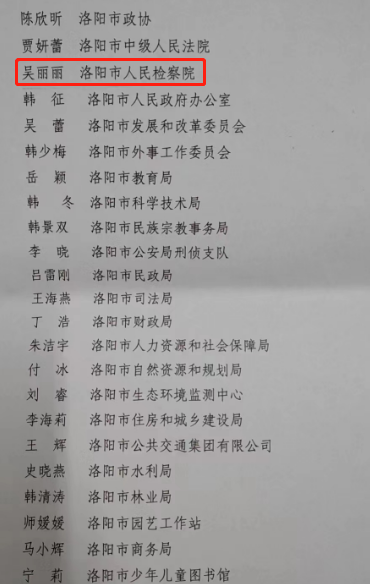 陈欣昕 洛阳市政协
贾妍蕾 洛阳市中级人民法院
吴丽丽 洛阳市人民检察院
韩 征 洛阳市人民政府办公室
吴 蕾 洛阳市发展和改革委员会
韩少梅 洛阳市外事工作委员会
岳 颖 洛阳市教育局
韩 冬 洛阳市科学技术局
韩景双 洛阳市民族宗教事务局
李 晓 洛阳市公安局刑侦支队
吕雷刚 洛阳市民政局
王海燕 洛阳市司法局
丁 浩 洛阳市财政局
朱洁宇 洛阳市人力资源和社会保障局
付 冰 洛阳市自然资源和规划局
刘 睿 洛阳市生态环境监测中心
李海莉 洛阳市住房和城乡建设局
王 辉 洛阳市公共交通集团有限公司
史晓燕 洛阳市水利局
韩清涛 洛阳市林业局
师媛媛 洛阳市园艺工作站
马小辉 洛阳市商务局
宁 莉 洛阳市少年儿童图书馆